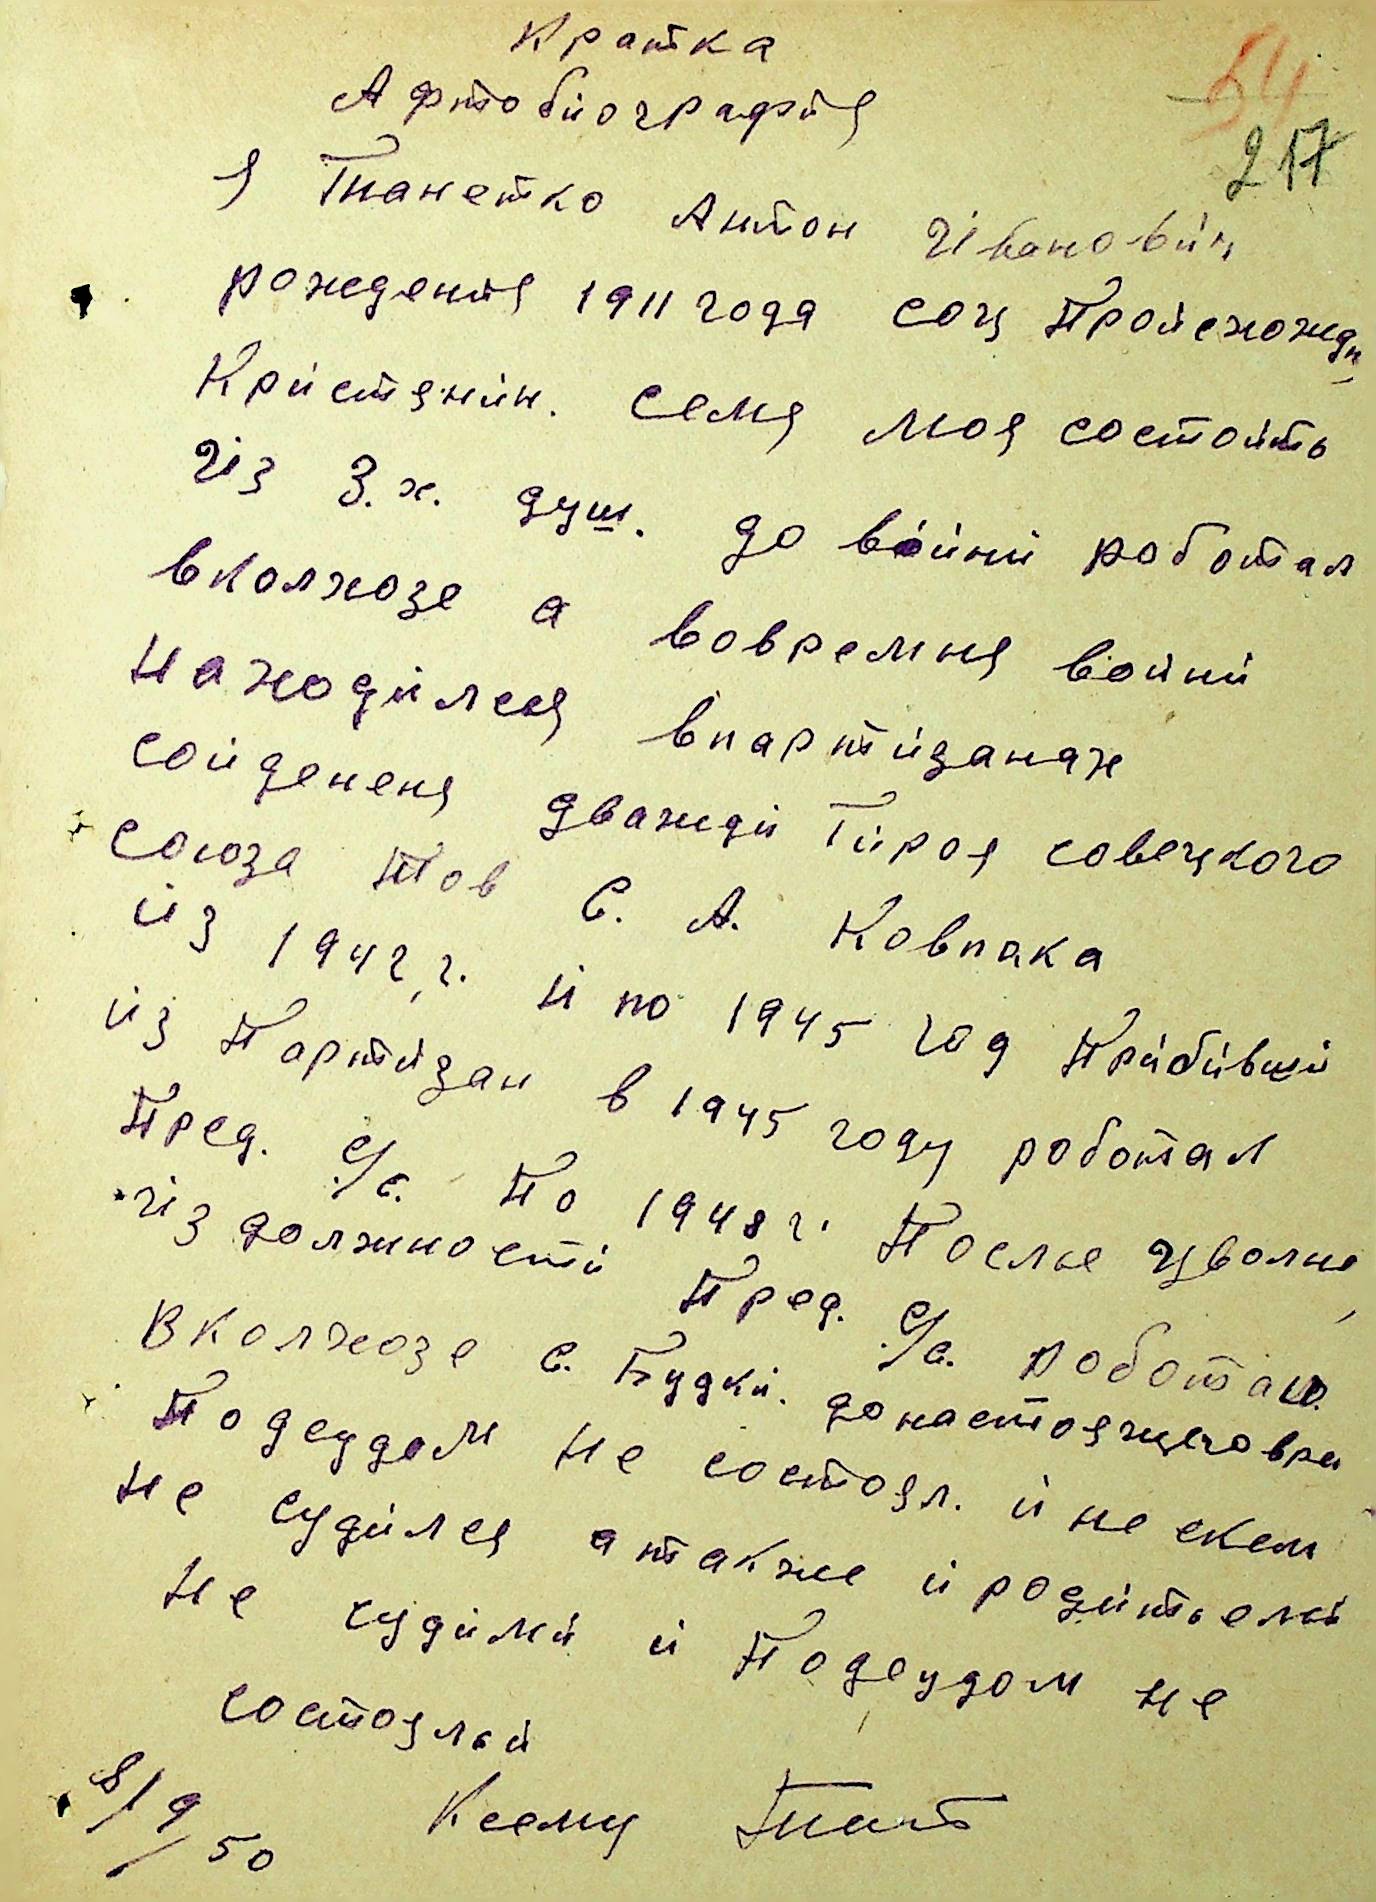 Кратка
Афтобиография
54
217
Я Гнанетко Антон Иванович
рождения 1911 года соц Пройсхождн
Кристянин. семя моя состоить
Из 3.х. душ. до войни роботал
вколхозе а вовремня войни
находился впартизанах
сойдененя дважди Гироя совецкого
союза Тов С. А. Ковпака
из 1942 г. и по 1945 год Прибивши
из Партизан в 1945 году роботал
Пред. с/с. По 1948 г. После уволне
Из должности Пред. с/с. роботаю
в колхозе с. Будки. донастоящеговре
Подсудом не состоял. и не скем
не судился атакже и родитьели
не судили и Подсудом не
состояльи
8/9/50 Ксему